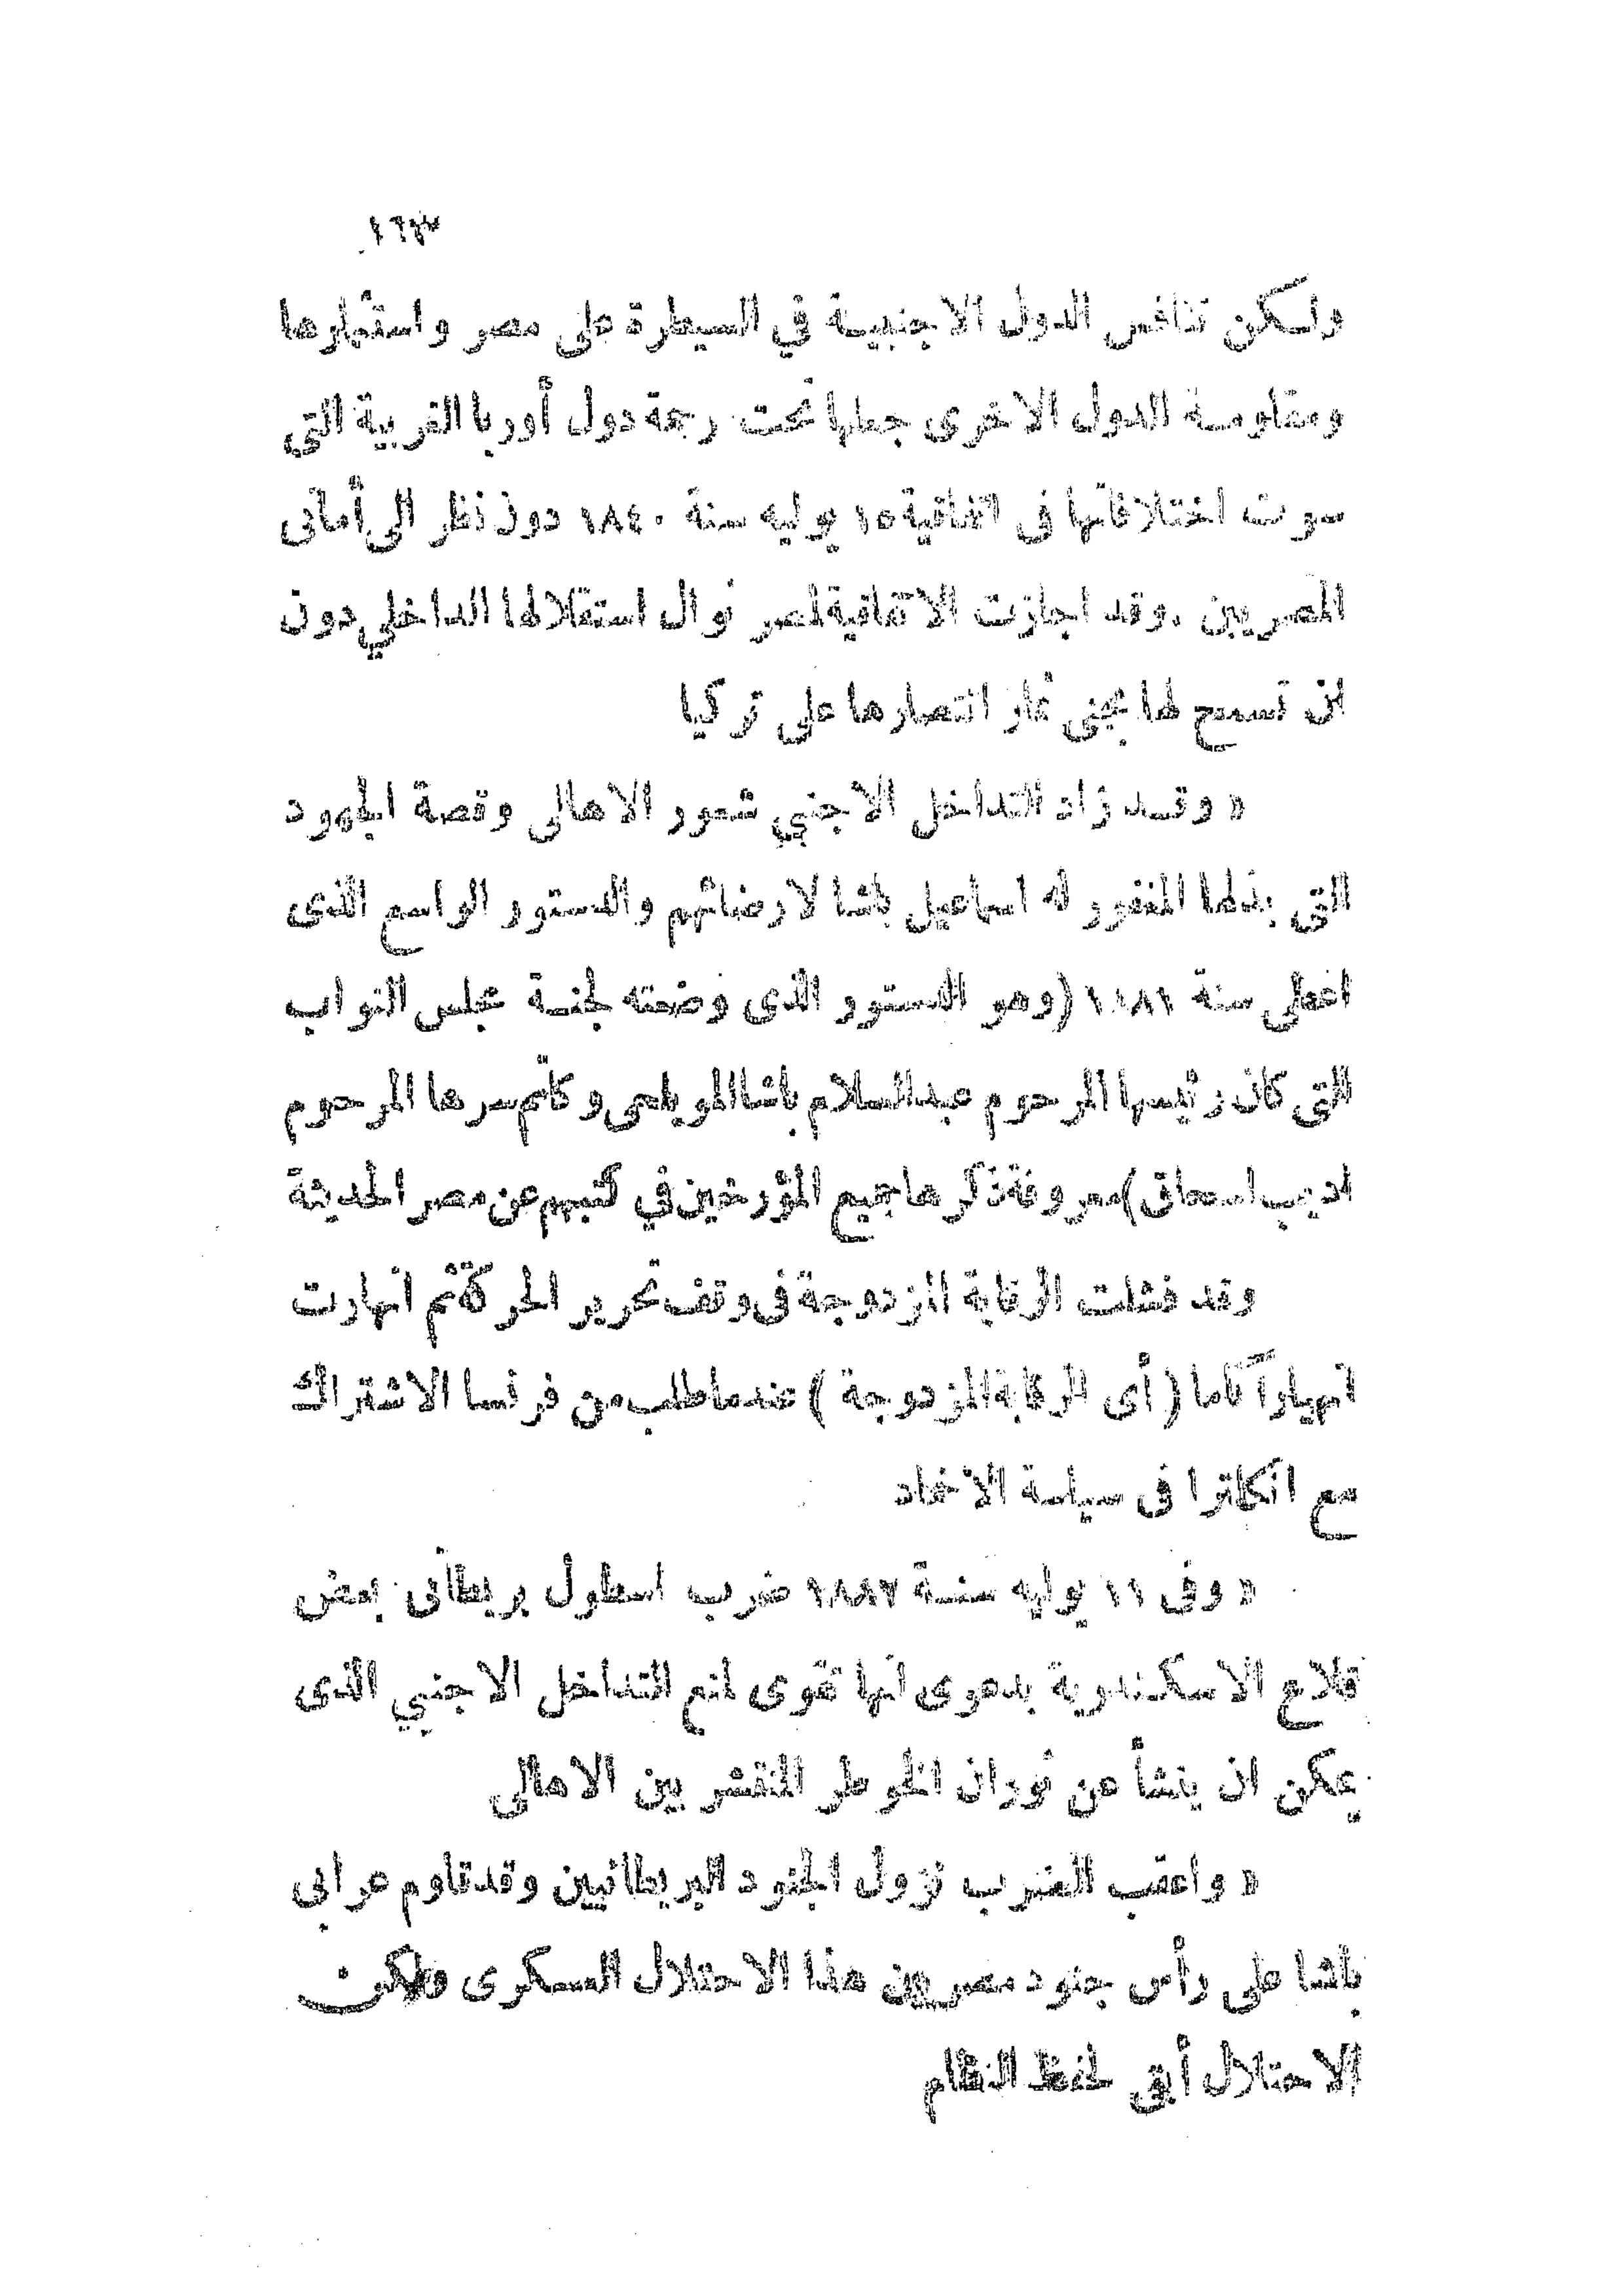 ١٦٣
ولكن تنافس الدول الاجنبية في السيطرة على مصر واستثمارها
ومقاومة الدول الاخرى جعلها تحت رحمة دول أوربا الغربية التى
سوت اختلافاتها فى اتفاقية ١٥ يوليه سنة ١٨٤٠ دون نظر الى أمانى
المصريين . وقد اجازت الاتفاقية لمصر نوال استقلالها الداخلي دون
ان تسمح لها بجنى ثمار انتصارها على تركيا
« وقد زاد التداخل الاجنبي شعور الاهالى وقصة الجهود
التى بذلها المغفور له اسماعيل باشا لارضائهم والدستور الواسع الذى
اعطى سنة ١٨٨١ (وهو الدستور الذى وضعته لجنة مجلس النواب
التى كان رئيسها المرحوم عبد السلام باشا المويلحى وكاتم سرها المرحوم
اديب اسحاق) معروفة ذكرها جميع المؤرخين في كتبهم عن مصر الحديثة
وقد فشلت الرقابة المزدوجة فى وقف تحرير الحركة ثم انهارت
انهياراً تاما (أى الرقابة المزدوجة) عندما طلب من فرنسا الاشتراك
مع انكلترا فى سياسة الاخماد
« وفى ١١ يوليه سنة ١٨٨٢ ضرب اسطول بريطانى بعض
قلاع الاسكندرية بدعوى انها تقوى لمنع التداخل الاجنبي الذى
يمكن ان ينشأ عن ثوران الخواطر المنتشر بين الاهالى
« واعقب الضرب نزول الجنود البريطانيين وقد قاوم عرابى
باشا على رأس جنود مصريين هذا الاحتلال العسكرى ولكن
الاحتلال أبقى لحفظ النظام